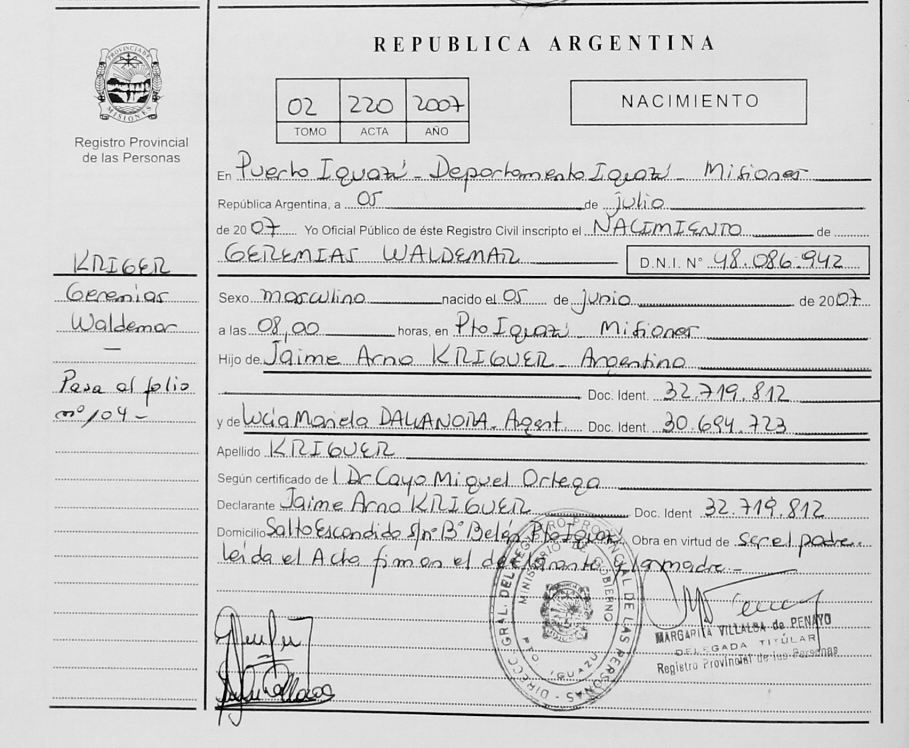 REPUBLICA ARGENTINA
PROVINCIA DE MISIONES
Registro Provincial
de las Personas
02 220 2007
TOMO ACTA AÑO
NACIMIENTO
En Puerto Iguazú - Departamento Iguazú - Misiones
República Argentina, a 05 de julio
de 2007 Yo Oficial Público de éste Registro Civil inscripto el NACIMIENTO de
GEREMIAS WALDEMAR D.N.I. Nº 48.086.942
KRIGER
Geremias
Waldemar
—
Pasa al folio
nº 104 -
Sexo masculino nacido el 05 de junio de 2007
a las 08,00 horas, en Pto Iguazú Misiones
Hijo de Jaime Arno KRIGUER Argentino
Doc. Ident. 32.719.812
y de Lucia Mariela DALLANORA. Argent. Doc. Ident. 30.694.723
Apellido KRIGUER
Según certificado de l Dr Cayo Miguel Ortega
Declarante Jaime Arno KRIGUER Doc. Ident 32.719.812
Domicilio Salto Escondido s/nº Bº Belén Pto Iguazú Obra en virtud de ser el padre.
leida el Acta firman el declarante y la madre -
DIRECC. GRAL. DEL REGISTRO PROVINCIAL DE LAS PERSONAS
MINISTERIO DE GOBIERNO
PTO IGUAZU
MARGARITA VILLALBA de PENAYO
DELEGADA TITULAR
Registro Provincial de las Personas